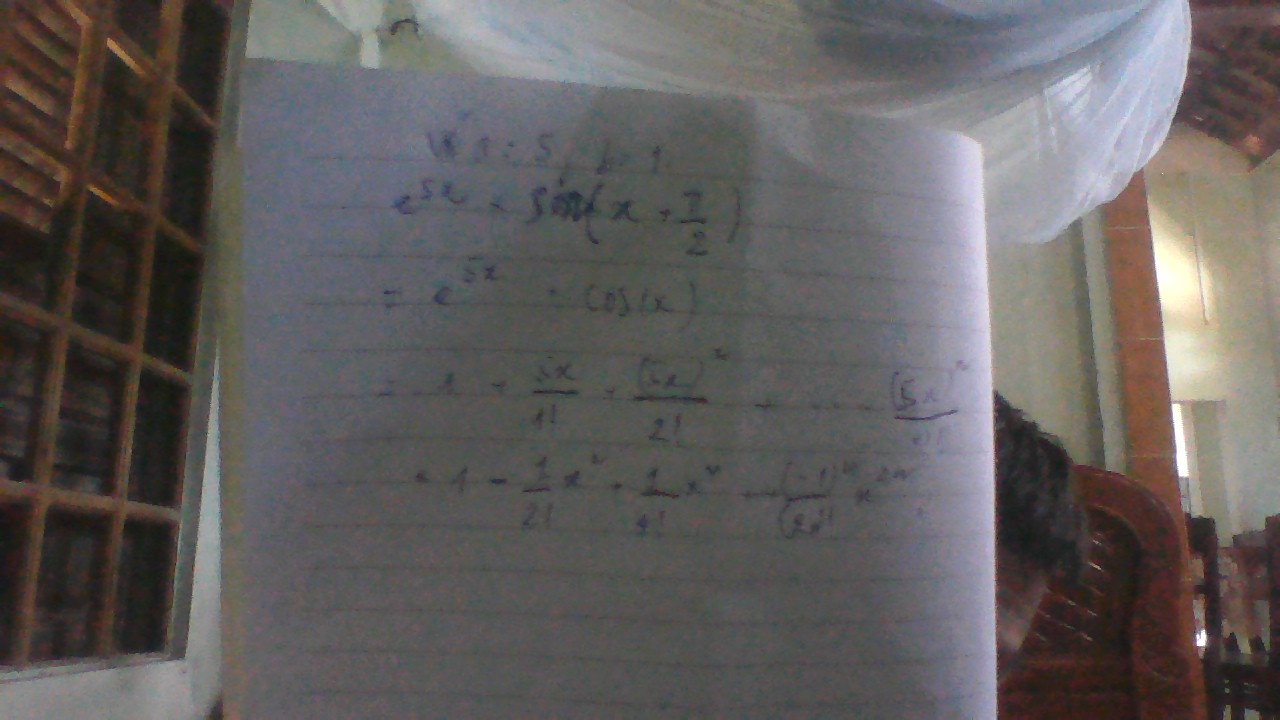 a = 5, b = 1
e^{5x} + sin(x + π/2)
= e^{5x} + cos(x)
= 1 + 5x/1! + (5x)^2/2! + .... (5x)^n/n!
+ 1 - 1/2! x^2 + 1/4! x^4 ... (-1)^n/(2n)! x^{2n}